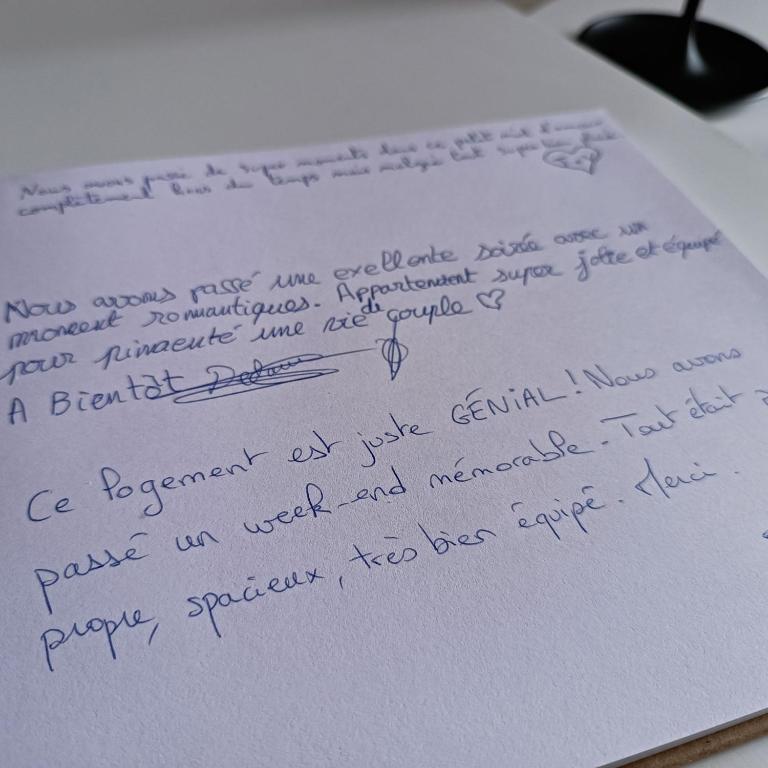 Nous avons passé de super moments dans ce petit nid d'amour
complètement hors du temps mais malgré tout super
Nous avons passé une exellente soirée avec un
moment romantiques. Appartement super jolie et équipé
pour pimenté une vie de couple ♡
A Bientôt
Ce logement est juste GÉNIAL! Nous avons
passé un week-end mémorable. Tout était
propre, spacieux, très bien équipé. Merci.